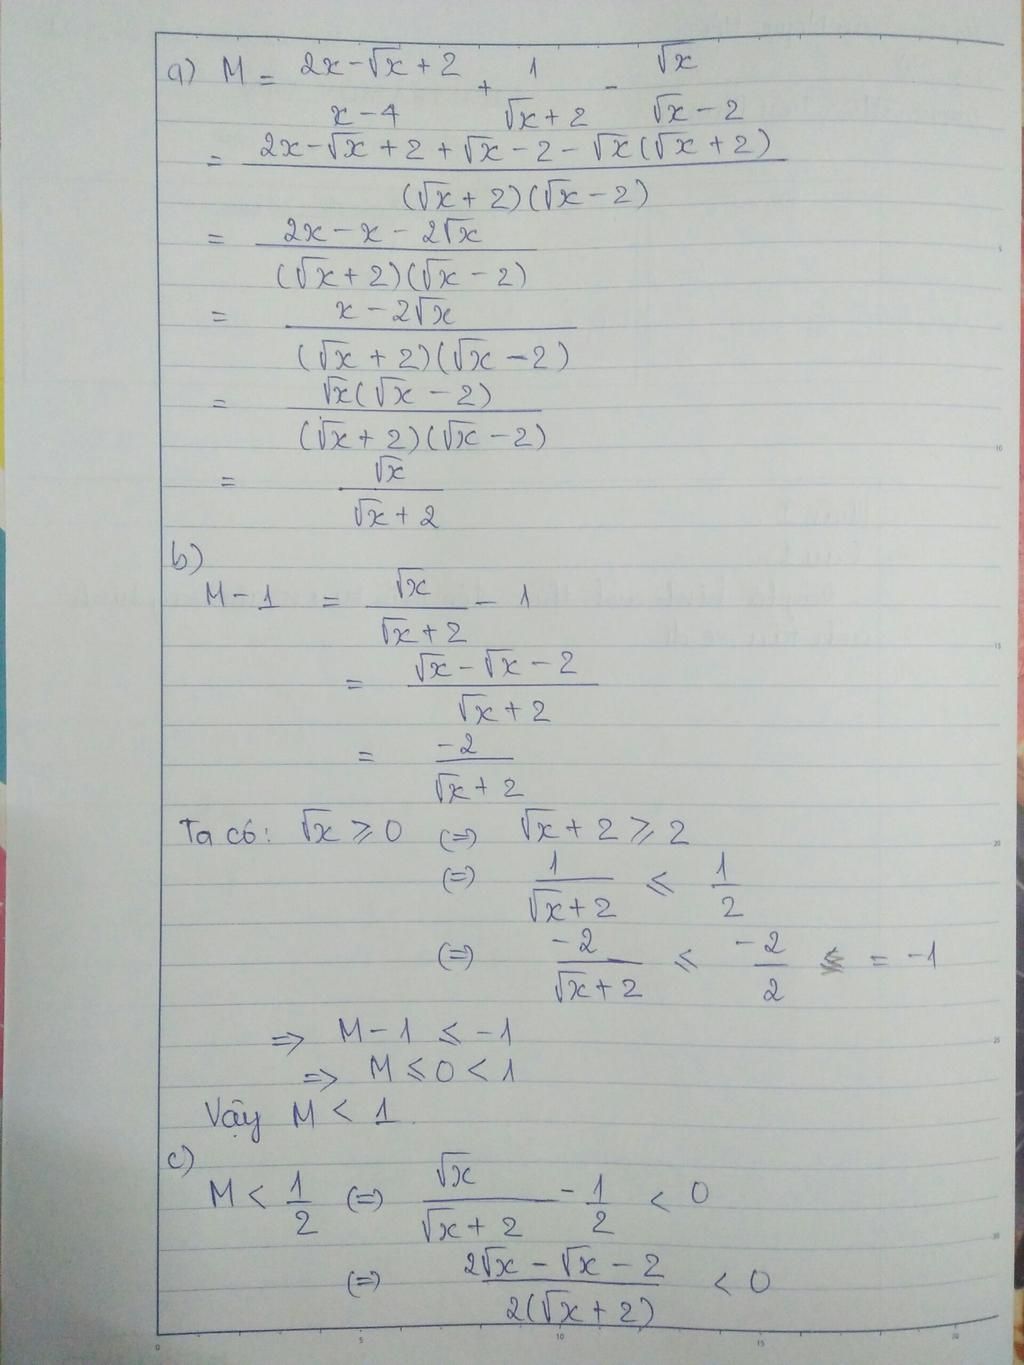 a) M = (2x - √x + 2)/(x - 4) + 1/(√x + 2) - √x/(√x - 2)
= (2x - √x + 2 + √x - 2 - √x(√x + 2))/((√x + 2)(√x - 2))
= (2x - x - 2√x)/((√x + 2)(√x - 2))
= (x - 2√x)/((√x + 2)(√x - 2))
= (√x(√x - 2))/((√x + 2)(√x - 2))
= √x/(√x + 2)
b)
M - 1 = √x/(√x + 2) - 1
= (√x - √x - 2)/(√x + 2)
= -2/(√x + 2)
Ta có: √x ⩾ 0 (=) √x + 2 ⩾ 2
(=) 1/(√x + 2) ⩽ 1/2
(=) -2/(√x + 2) ⩽ -2/2 = -1
=> M - 1 ⩽ -1
=> M ⩽ 0 < 1
Vậy M < 1
c)
M < 1/2 (=) √x/(√x + 2) - 1/2 < 0
(=) (2√x - √x - 2)/(2(√x + 2)) < 0